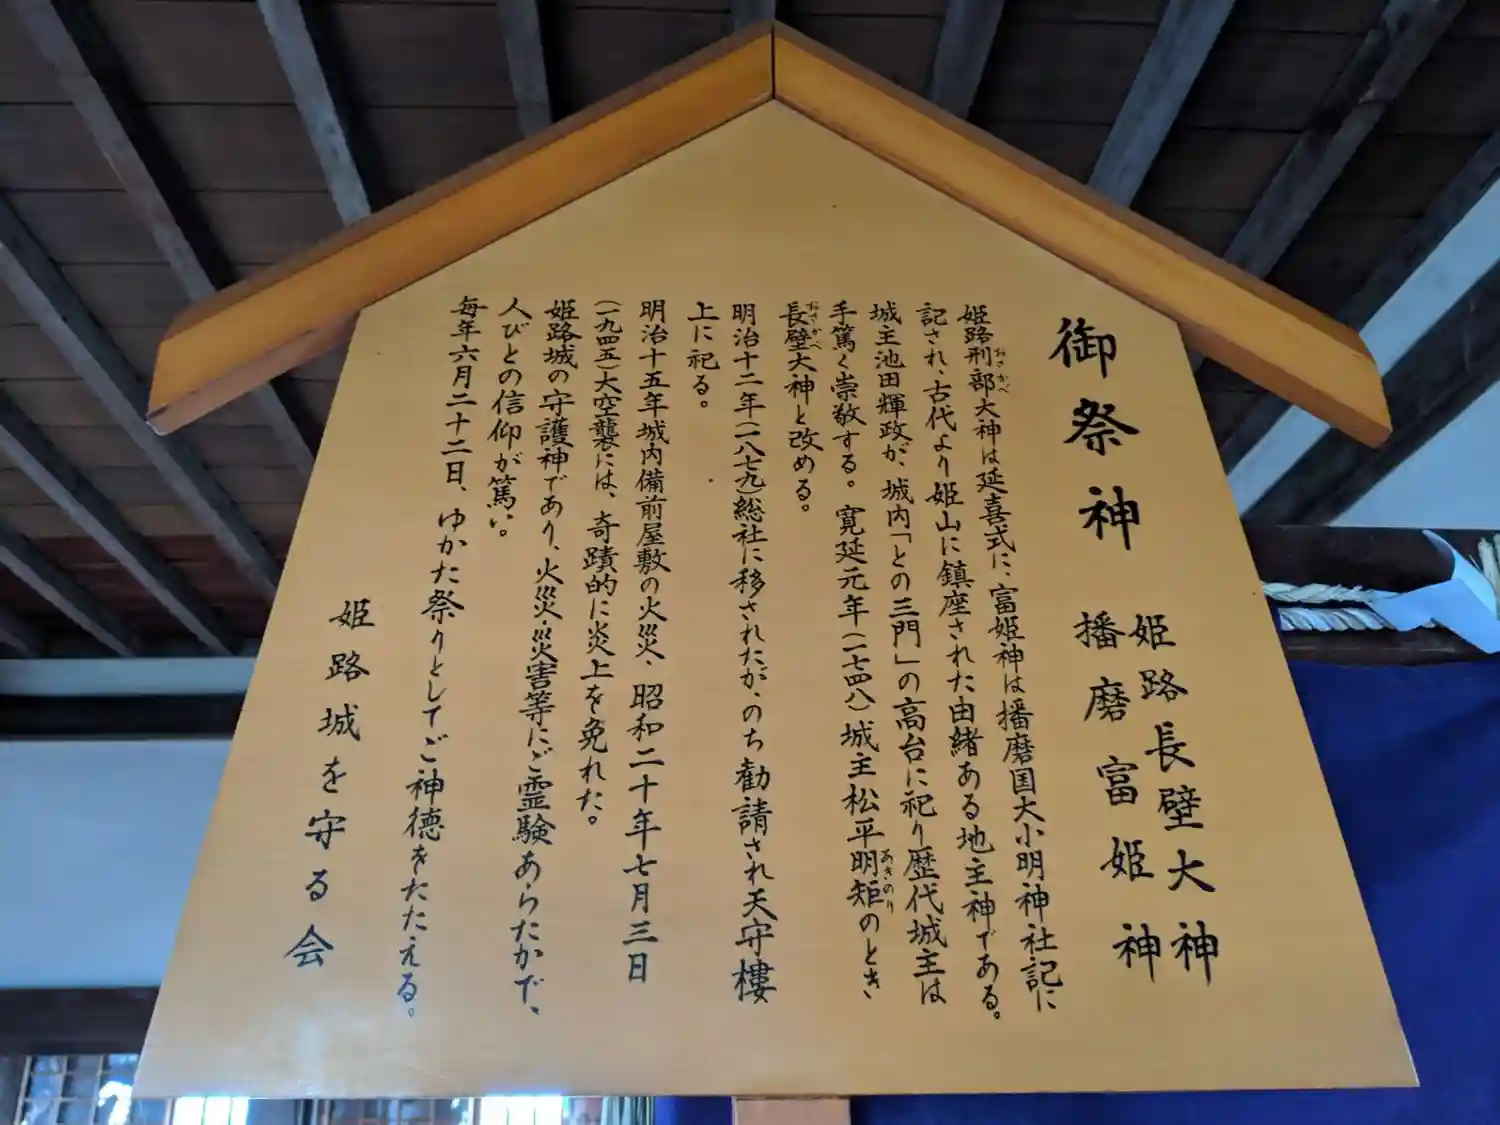 御祭神
姫路長壁大神
播磨富姫神
姫路刑部大神は延喜式に、富姫神は播磨国大小明神社記に
おさかべ
記され、古代より姫山に鎮座された由緒ある地主神である。
城主池田輝政が、城内「との三門」の高台に祀り歴代城主は
手篤く崇敬する。寛延元年(一七四八)城主松平明矩のとき
あきのり
長壁大神と改める。
おさかべ
明治十二年(一八七九)総社に移されたが、のち勧請され天守樓
上に祀る。
明治十五年城内備前屋敷の火災、昭和二十年七月三日
(一九四五)大空襲には、奇蹟的に炎上を免れた。
姫路城の守護神であり、火災・災害等にご霊験あらたかで、
人びとの信仰が篤い。
毎年六月二十二日、ゆかた祭りとしてご神徳をたたえる。
姫路城を守る会